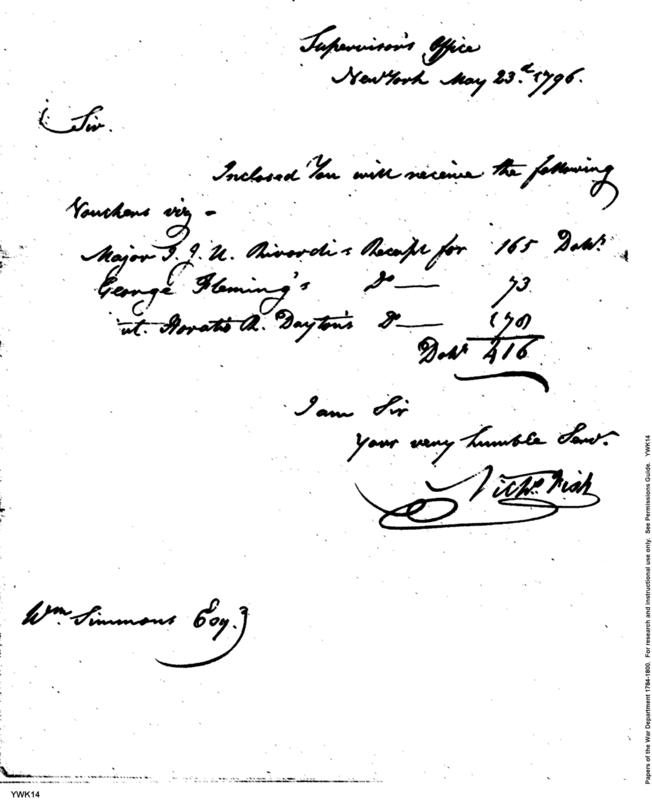 Supervisor's Office
New York May 23.d 1796.
Sir.
Inclosed You will receive the following
Vouchers viz -
Major J. J. U. Rivardi's Receipt for 165 Dolrs.
George Fleming's Do — 73
Lt. Horatio R. Dayton's Do — 178
Dolrs 416
I am Sir
Your very humble Servt.
Nichs. Fish
Wm. Simmons Esq.r
YWK14
Papers of the War Department 1784-1800. For research and instructional use only. See Permissions Guide. YWK14